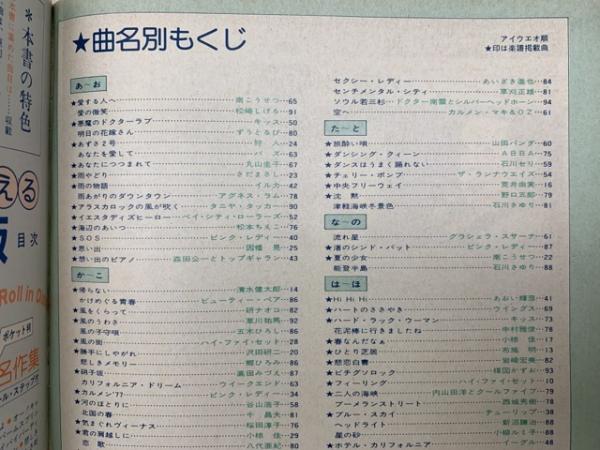 ★曲名別もくじ
アイウエオ順
★印は楽譜掲載曲
あ〜お
★愛する人へ 南こうせつ 65
愛の微笑 松崎しげる 91
★悪魔のドクターラブ キッス 50
明日の花嫁さん ずうとるび 80
★あずさ2号 狩人 24
あなたを愛して バズ 63
★あなたにつつまれて 丸山圭子 67
★雨やどり さだまさし 23
★雨の物語 イルカ 42
雨あがりのダウンタウン アグネス・ラム 78
★アラスカロックの風が吹く タニヤ・タッカー 90
★イエスタディズヒーロー ベイ・シティ・ローラーズ 52
★海辺のあいつ 松本ちえこ 76
★SOS ピンク・レディー 40
★思い出 因幡晃 25
★想い出のピアノ 森田公一とトップギャラン 30
か〜こ
★帰らない 清水健太郎 14
かけめぐる青春 ビューティー・ペア 86
★風をくらって 研ナオコ 81
★風のうわさ 草川祐馬 92
風の子守唄 五木ひろし 86
★風の街 ハイ・ファイ・セット 28
★勝手にしやがれ 沢田研二 20
悲しきメモリー 郷ひろみ 86
★硝子坂 高田みづえ 31
カリフォルニア・ドリーム ウイークエンド 54
★カルメン'77 ピンク・レディー 34
★河のほとりに 谷山浩子 58
北国の春 千昌夫 81
★気まぐれヴィーナス 桜田淳子 76
★君の肩越しに 小椋佳 29
恋歌 八代亜紀 80
セクシー・レディー あいざき進也 84
センチメンタル・シティ 草刈正雄 81
ソウル若三杉 ドクター南雲とシルバーヘッドホーン 94
空へ カルメン・マキ&OZ 61
た〜と
★旅酔い唄 山田パンダ 60
★ダンシング・クィーン ABBA 75
★ダンスはうまく踊れない 石川セリ 59
★チェリー・ボンブ ザ・ランナウエイズ 54
★中央フリーウェイ 荒井由実 16
★沈黙 野口五郎 79
津軽海峡冬景色 石川さゆり 81
な〜の
流れ星 グラシェラ・スサーナ 61
★渚のシンド・バット ピンク・レディー 87
★夏の少女 南こうせつ 22
能登半島 石川さゆり 88
は〜ほ
★Hi Hi Hi あおい輝彦 41
★ハートのささやき ウイングス 69
★ハード・ラック・ウーマン キッス 73
花泥棒に行きましたね 中村雅俊 91
★春なんだなぁ 小椋佳 17
★ひとり芝居 布施明 13
★悲恋白書 岩崎宏美 82
★ビチグソロック 楳図かずお 93
★フィーリング ハイ・ファイ・セット 10
★二人の海峡 内山田洋とクールファイブ 78
ブーメランストリート 西城秀樹 79
★ブルー・スカイ チューリップ 38
ヘッドライト 新沼謙治 80
星の砂 小柳ルミ子 88
★ホテル・カリフォルニア イーグル 48
*本書の特色
える
版
目次
Roll in D
ポケット判
名作集